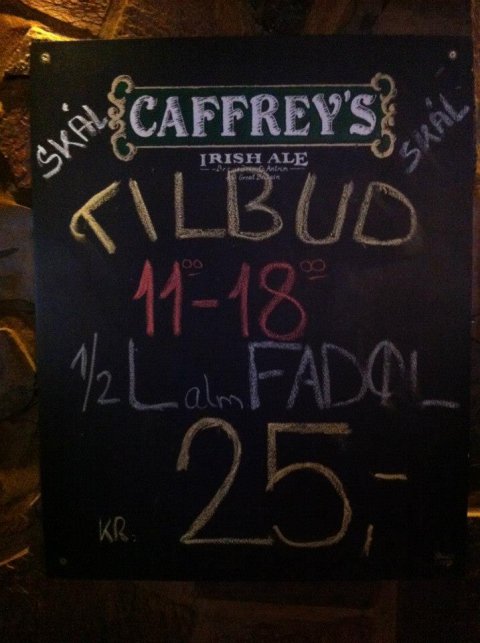 SKÅL
CAFFREY'S
SKÅL
IRISH ALE
TILBUD
11⁰⁰-18⁰⁰
1/2 L alm FADØL
KR. 25,-